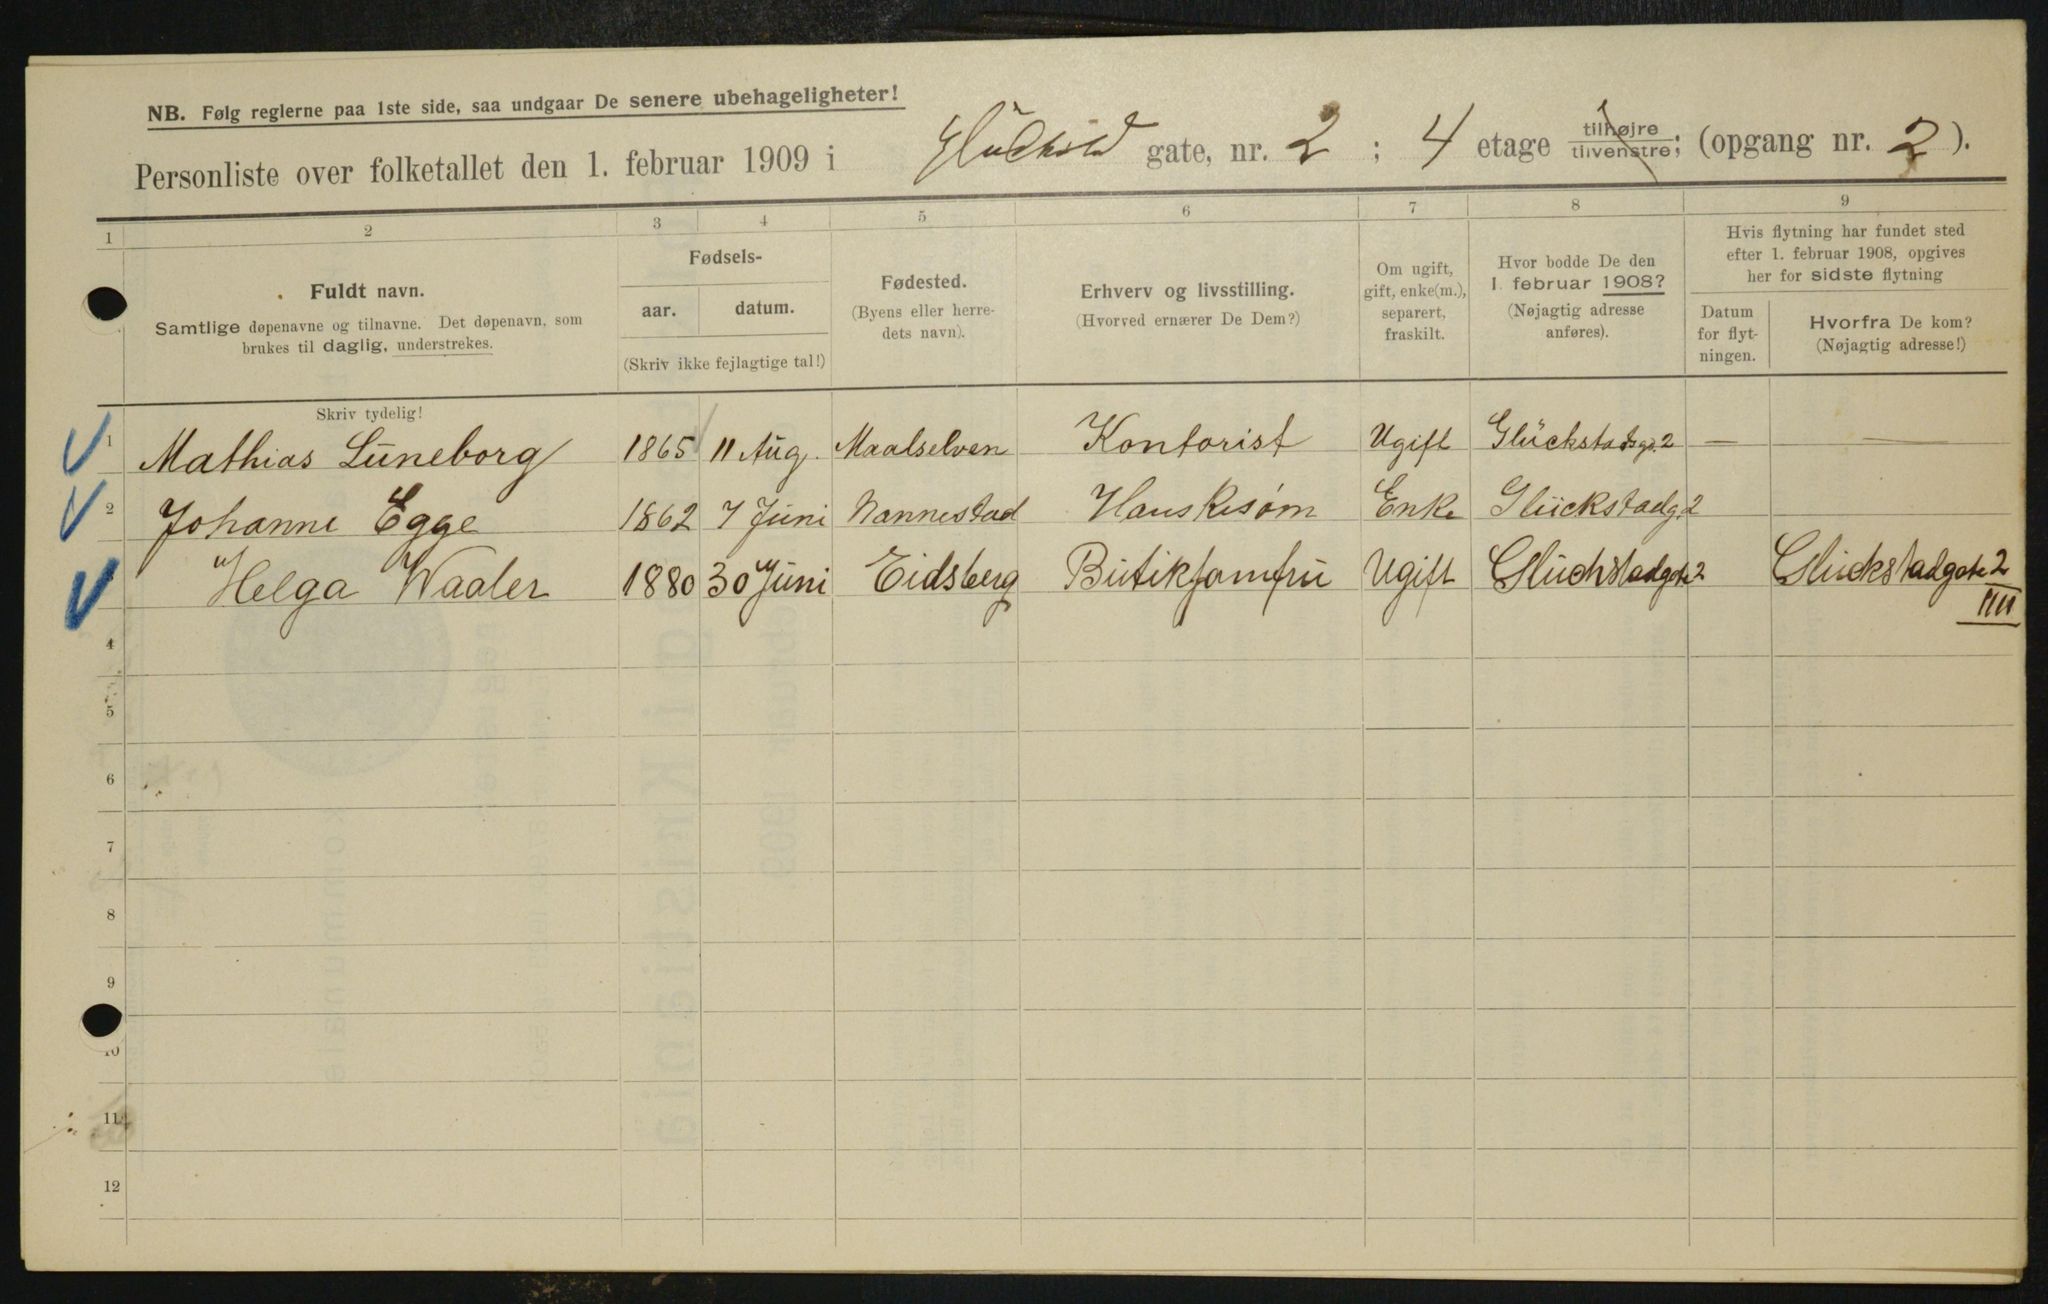 NB. Følg reglerne paa 1ste side, saa undgaar De senere ubehageligheter!
Personliste over folketallet den 1. februar 1909 i Glückstd gate, nr. 2 ; 4 etage tilhøjre tilvenstre; (opgang nr. 2).
1 2 3 4 5 6 7 8 9
Fuldt navn.
Samtlige døpenavne og tilnavne. Det døpenavn, som
brukes til daglig, understrekes.
Fødsels-
aar. datum.
(Skriv ikke fejlagtige tal!)
Fødested.
(Byens eller herre-
dets navn).
Erhverv og livsstilling.
(Hvorved ernærer De Dem?)
Om ugift,
gift, enke(m.),
separert,
fraskilt.
Hvor bodde De den
1. februar 1908?
(Nøjagtig adresse
anføres).
Hvis flytning har fundet sted
efter 1. februar 1908, opgives
her for sidste flytning
Datum
for flyt-
ningen.
Hvorfra De kom?
(Nøjagtig adresse!)
Skriv tydelig!
1 Mathias Lüneborg 1865 11 Aug. Maalselven Kontorist Ugift Glückstadsg. 2 — —
2 Johanne Egge 1862 7 Juni Nannestad Enke Glückstadg. 2
Helga Waaler 1880 30 Juni Eidsberg Butikjomfru Ugift Glückstadgate 2 Glückstadgate 2
IIII
4
5
6
7
8
9
10
11
12